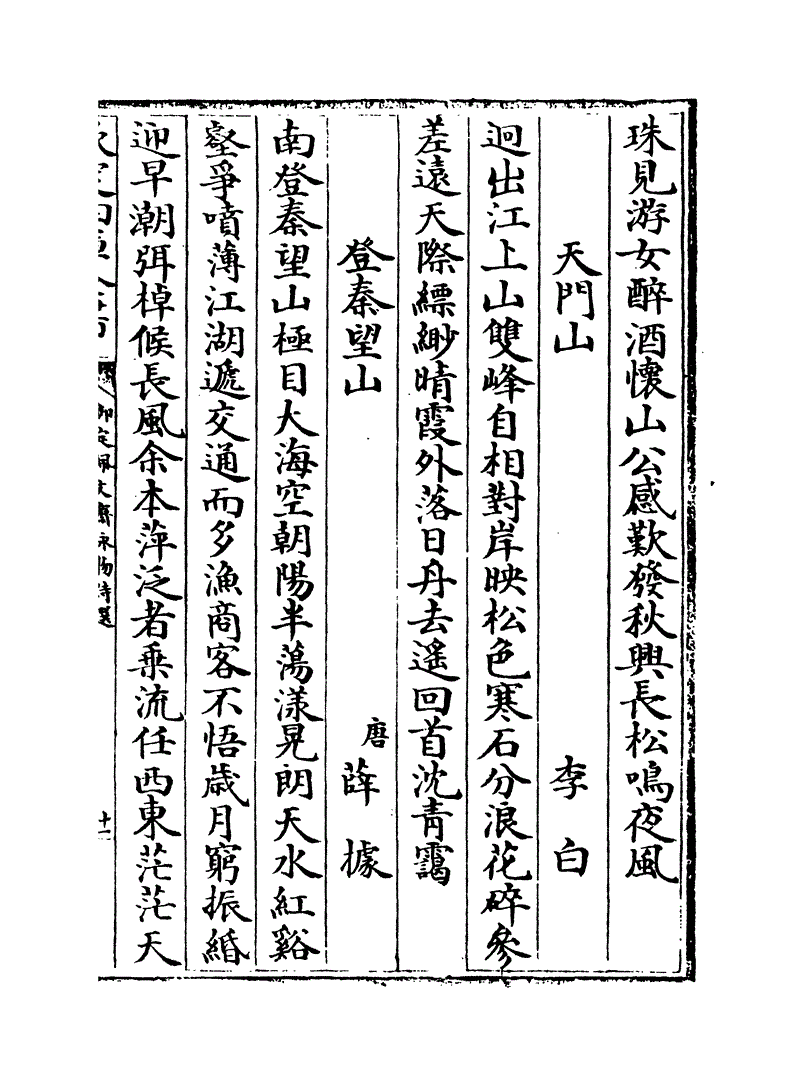 珠見游女醉酒懷山公感歎發秋興長松鳴夜風
天門山 李白
迥出江上山雙峰自相對岸映松色寒石分浪花碎參
差遠天際縹緲晴霞外落日丹去遥回首沈青靄
登秦望山 唐 薛據
南登秦望山極目大海空朝陽半蕩漾晃朗天水紅谿
壑爭噴薄江湖遞交通而多漁商客不悟歲月窮振緡
迎早潮弭棹候長風余本萍泛者乗流任西東茫茫天
御定佩文齋詠物詩選 十二